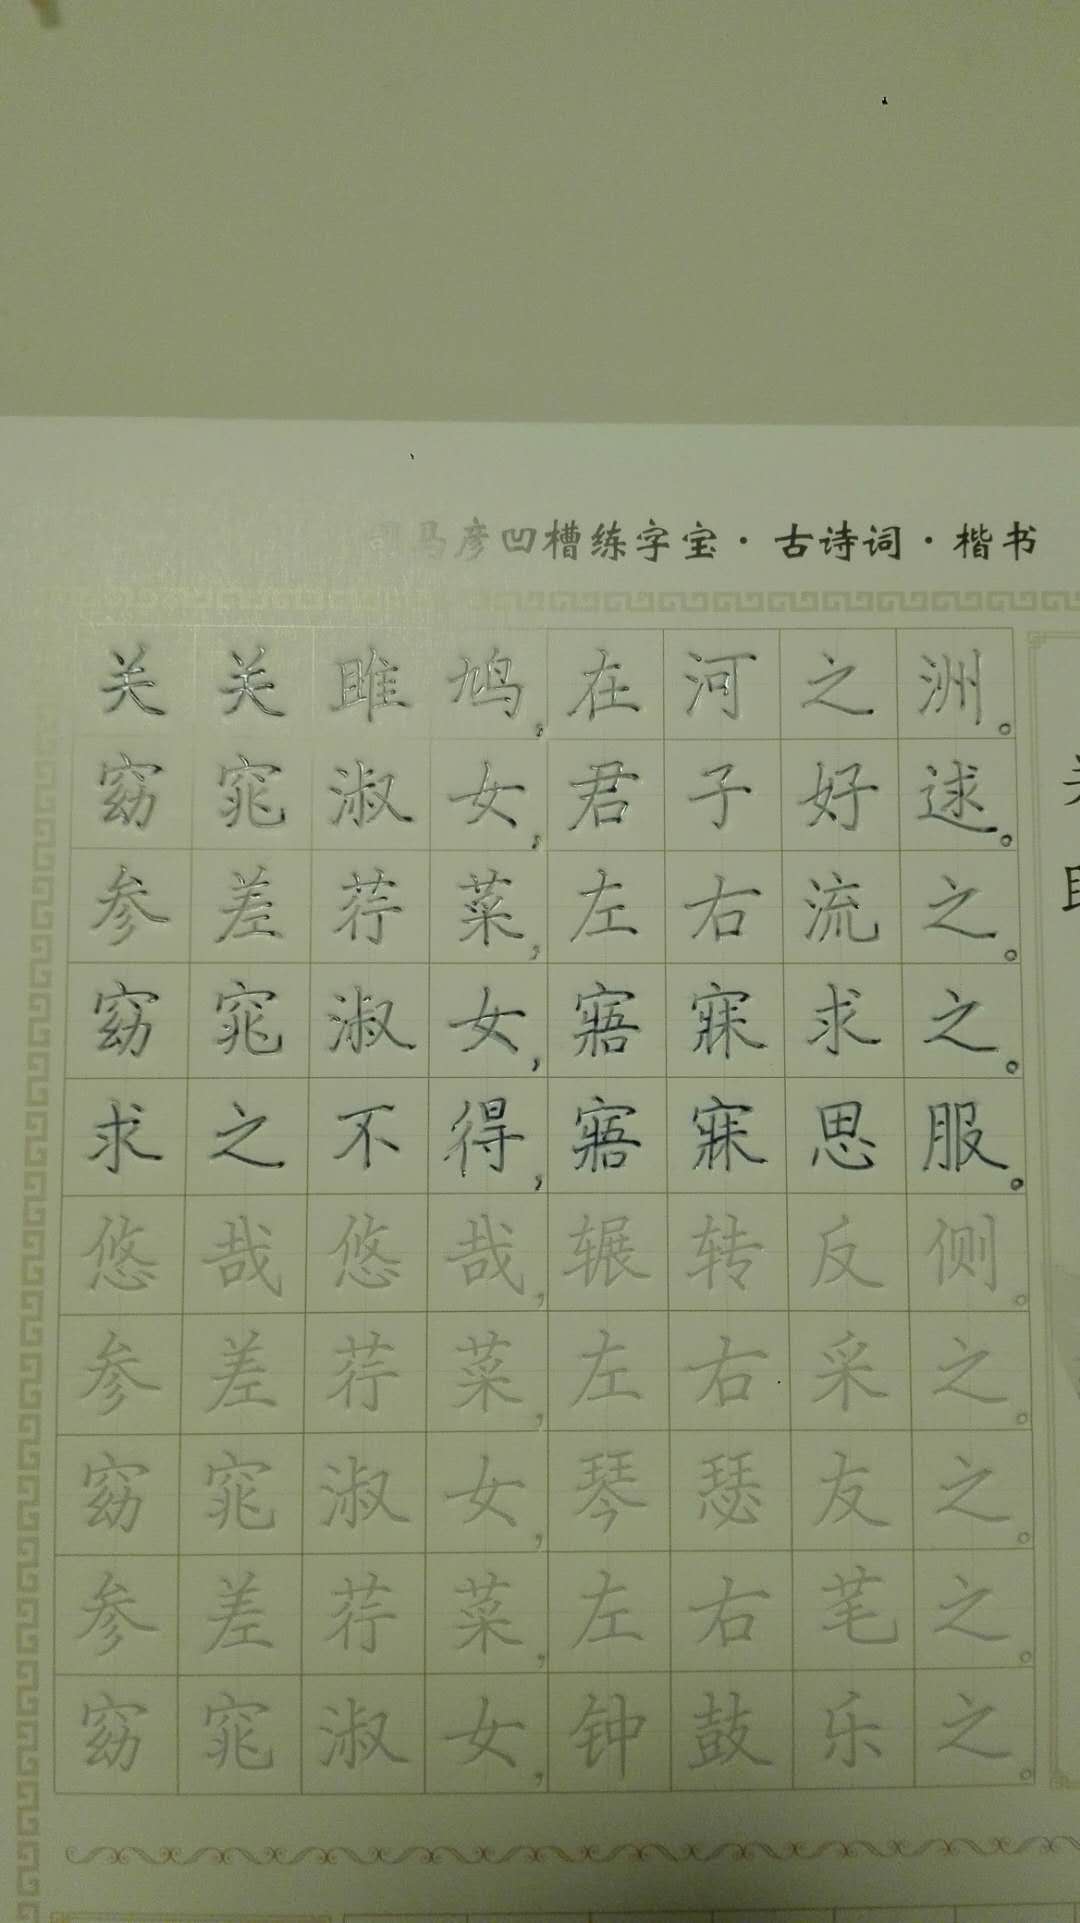 司马彦凹槽练字宝·古诗词·楷书
关关雎鸠,在河之洲。
窈窕淑女,君子好逑。
参差荇菜,左右流之。
窈窕淑女,寤寐求之。
求之不得,寤寐思服。
悠哉悠哉,辗转反侧。
参差荇菜,左右采之。
窈窕淑女,琴瑟友之。
参差荇菜,左右芼之。
窈窕淑女,钟鼓乐之。